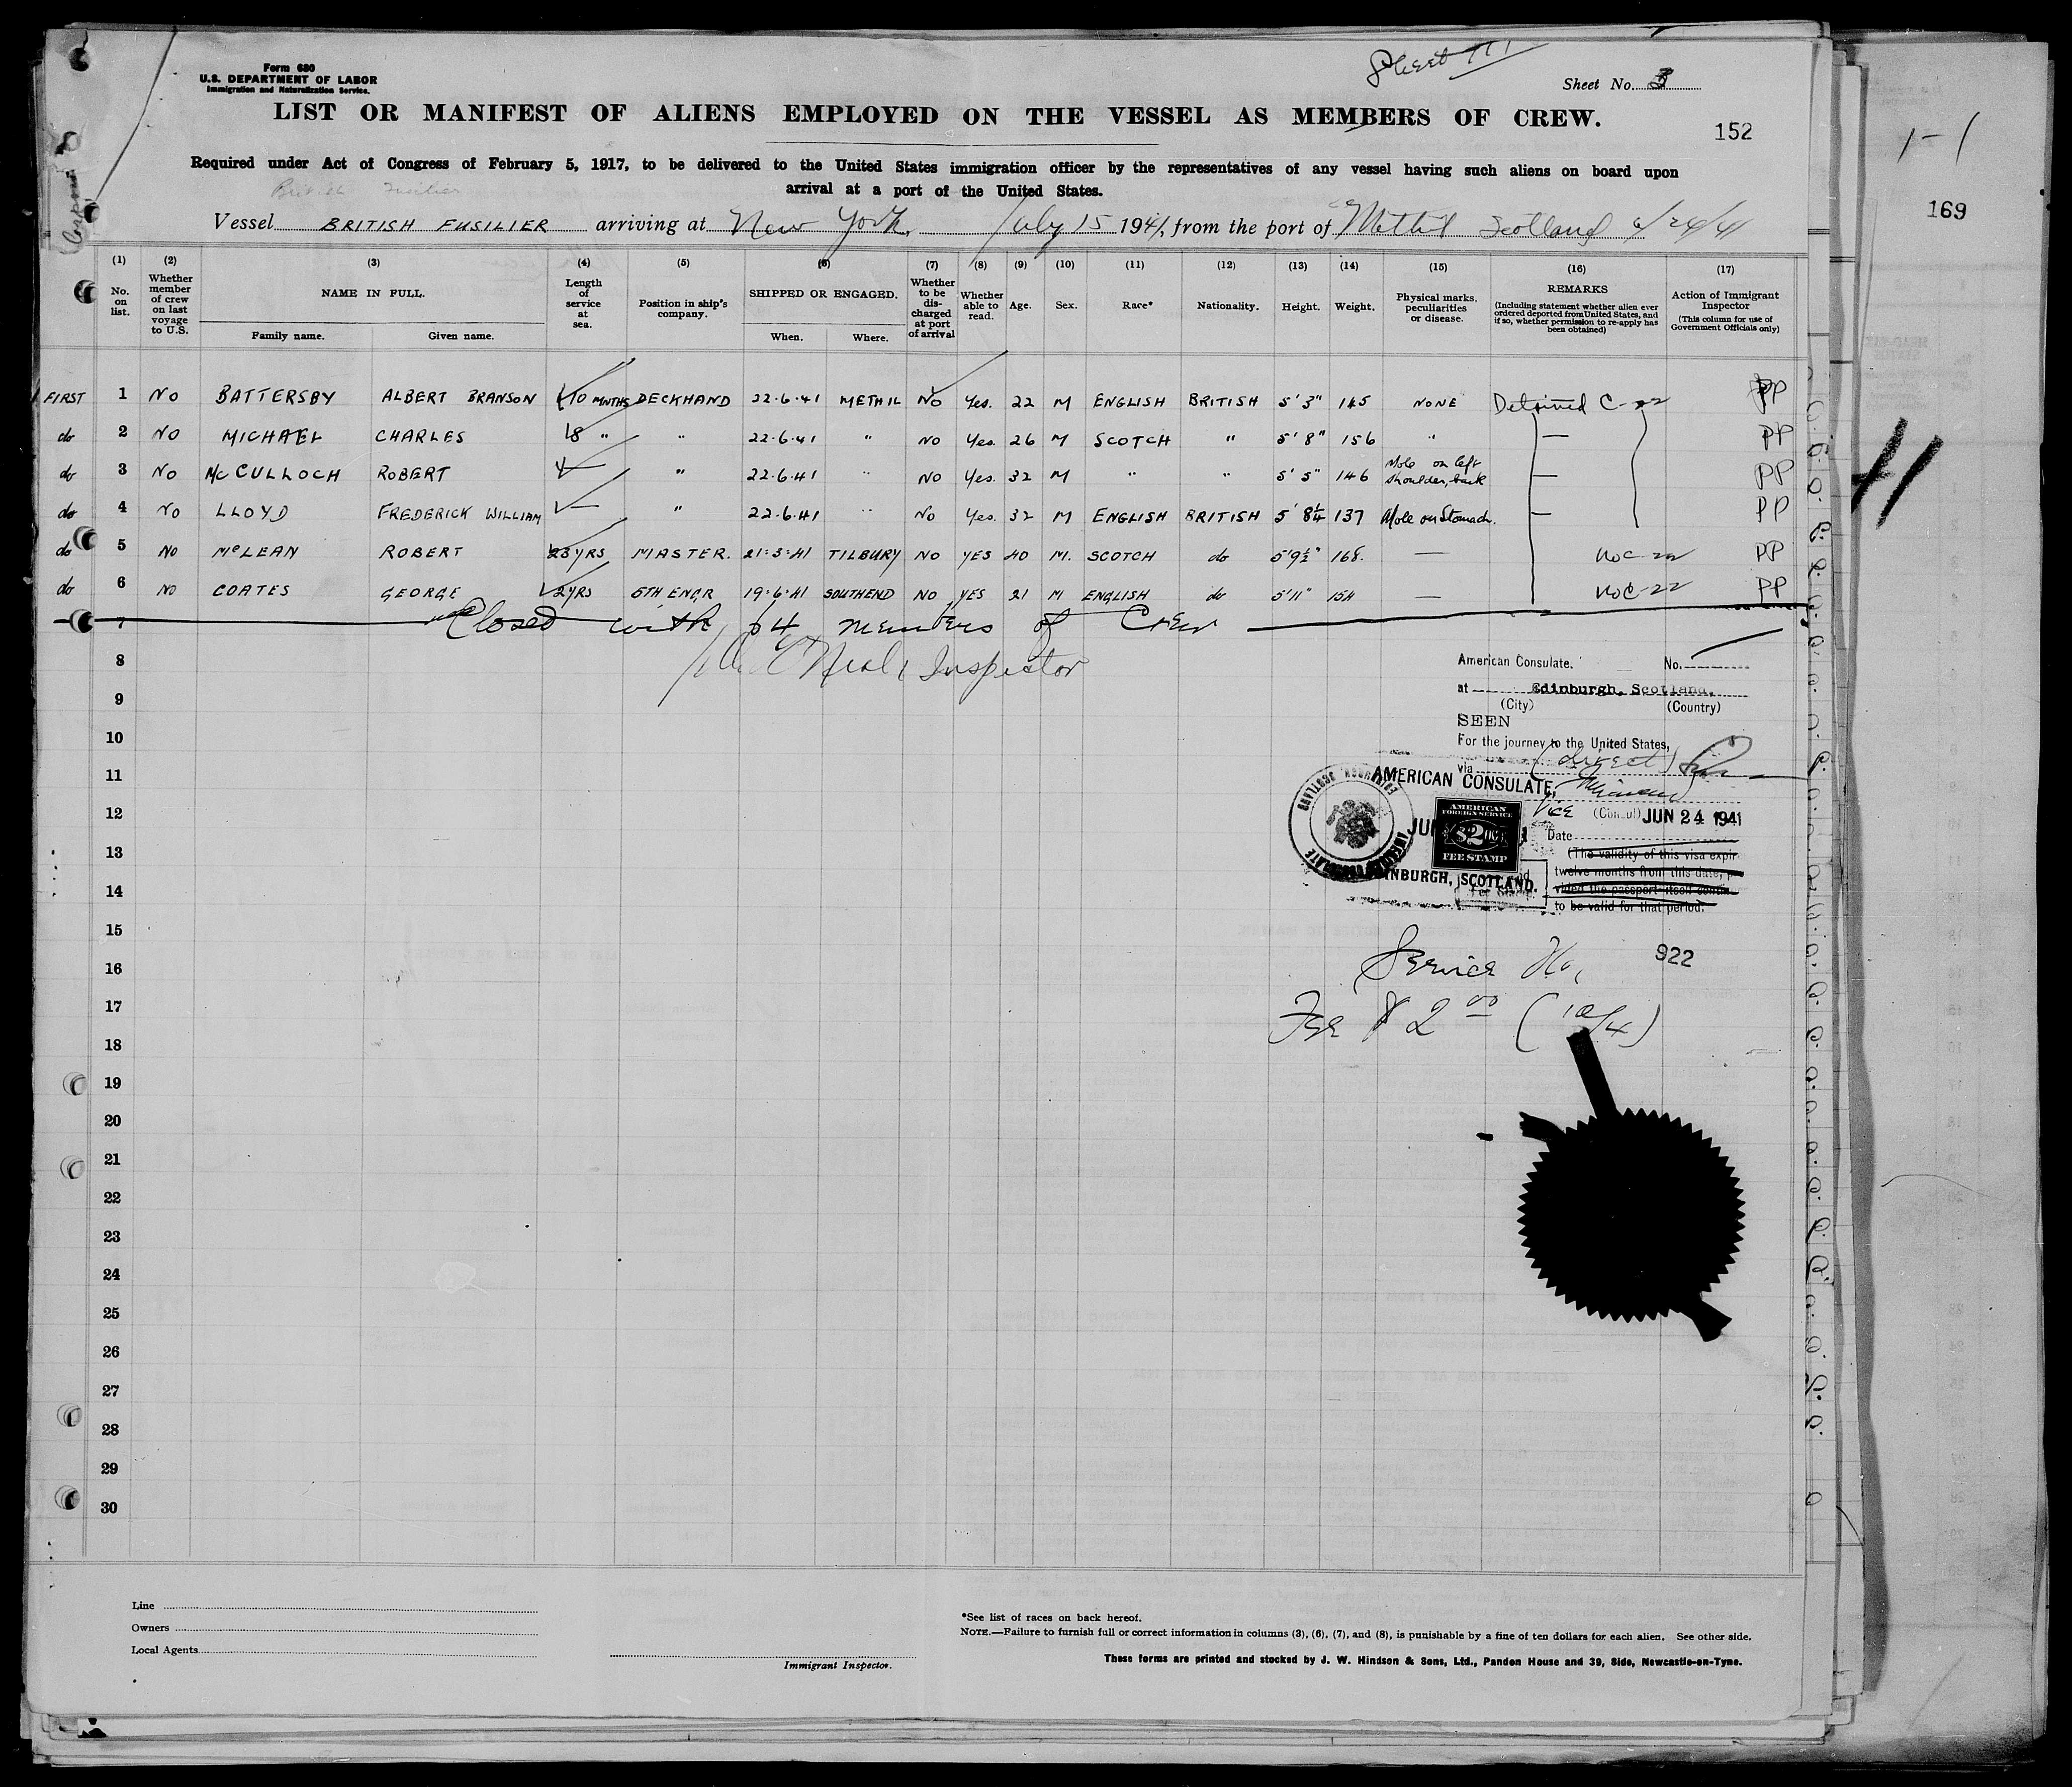 Form 680
U.S. DEPARTMENT OF LABOR
Immigration and Naturalization Service.
Sheet III
Sheet No. 3
LIST OR MANIFEST OF ALIENS EMPLOYED ON THE VESSEL AS MEMBERS OF CREW.
152
1-1
169
Required under Act of Congress of February 5, 1917, to be delivered to the United States immigration officer by the representatives of any vessel having such aliens on board upon
arrival at a port of the United States.
British Fusilier
Vessel BRITISH FUSILIER arriving at New York, July 15 1941, from the port of Methil Scotland 6/24/41
(1) (2) (3) (4) (5) (6) (7) (8) (9) (10) (11) (12) (13) (14) (15) (16) (17)
No. on list.
Whether member of crew on last voyage to U.S.
NAME IN FULL.
Family name. Given name.
Length of service at sea.
Position in ship's company.
SHIPPED OR ENGAGED.
When. Where.
Whether to be discharged at port of arrival
Whether able to read.
Age.
Sex.
Race*
Nationality.
Height.
Weight.
Physical marks, peculiarities or disease.
REMARKS
(Including statement whether alien ever ordered deported from United States, and if so, whether permission to re-apply has been obtained)
Action of Immigrant Inspector
(This column for use of Government Officials only)
FIRST 1 NO BATTERSBY ALBERT BRANSON 10 MNTHS DECKHAND 22.6.41 METHIL NO Yes. 22 M ENGLISH BRITISH 5' 3" 145 NONE Detained C-22 PP
do 2 NO MICHAEL CHARLES 8 " " 22.6.41 " NO Yes. 26 M SCOTCH " 5' 8" 156 " — PP
do 3 NO McCULLOCH ROBERT — " 22.6.41 " NO Yes. 32 M " " 5' 5" 146 Mole on left shoulder, back — PP
do 4 NO LLOYD FREDERICK WILLIAM — " 22.6.41 " NO Yes. 32 M ENGLISH BRITISH 5' 8¼ 137 Mole on Stomach. — PP
do 5 NO McLEAN ROBERT 23 YRS MASTER. 21:3:41 TILBURY NO YES 40 M. SCOTCH do 5'9½" 168. — No C-22 PP
do 6 NO COATES GEORGE 2 YRS 5TH ENGR 19:6:41 SOUTHEND NO YES 21 M ENGLISH do 5'11" 154 — No C-22 PP
7 Closed with 64 members of Crew
8
Inspector
9
10
11
12
13
14
15
16
17
18
19
20
21
22
23
24
25
26
27
28
29
30
American Consulate. No.
at Edinburgh, Scotland.
(City) (Country)
SEEN
For the journey to the United States,
via (direct)
AMERICAN CONSULATE,
Vice (Consul) JUN 24 1941
Date
AMERICAN
FOREIGN SERVICE
$2.00
FEE STAMP
EDINBURGH, SCOTLAND.
(The validity of this visa expir
twelve months from this date, p
vided the passport itself contin
to be valid for that period.
Service No. 922
Fee $ 2 00 (10/4)
Line
Owners
Local Agents
Immigrant Inspector.
*See list of races on back hereof.
NOTE.—Failure to furnish full or correct information in columns (3), (6), (7), and (8), is punishable by a fine of ten dollars for each alien. See other side.
These forms are printed and stocked by J. W. Hindson & Sons, Ltd., Pandon House and 39, Side, Newcastle-on-Tyne.